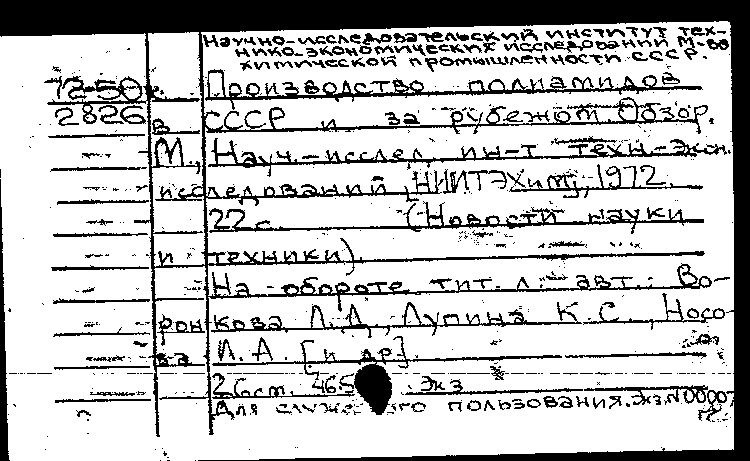 Научно-исследовательский институт тех-
нико-экономических исследований М-ва
химической промышленности СССР.
72-50 к. Производство полиамидов
2826 в СССР и за рубежом. Обзор.
М., Науч.-исслед. ин-т техн.-экон.
исследований [НИИТЭХим], 1972.
22 с. (Новости науки
и техники).
На обороте тит. л. авт.: Во-
ронкова Л.Д., Лупина К.С., Носо-
ва Л.А. [и др].
26 см. 465 экз
Для пользования. Экз. N